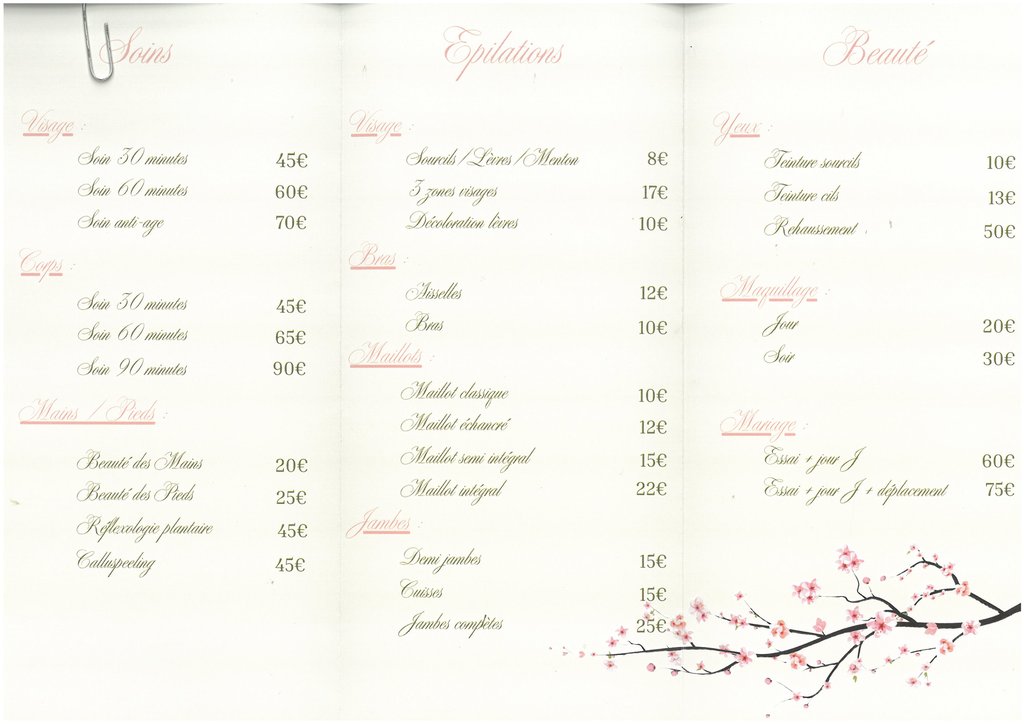 Soins
Visage :
Soin 30 minutes 45€
Soin 60 minutes 60€
Soin anti-age 70€
Corps :
Soin 30 minutes 45€
Soin 60 minutes 65€
Soin 90 minutes 90€
Mains / Pieds :
Beauté des Mains 20€
Beauté des Pieds 25€
Réflexologie plantaire 45€
Calluspeeling 45€
Epilations
Visage :
Sourcils / Lèvres / Menton 8€
3 zones visages 17€
Décoloration lèvres 10€
Bras :
Aisselles 12€
Bras 10€
Maillots :
Maillot classique 10€
Maillot échancré 12€
Maillot semi intégral 15€
Maillot intégral 22€
Jambes :
Demi jambes 15€
Cuisses 15€
Jambes compètes 25€
Beauté
Yeux :
Teinture sourcils 10€
Teinture cils 13€
Rehaussement 50€
Maquillage :
Jour 20€
Soir 30€
Mariage :
Essai + jour J 60€
Essai + jour J + déplacement 75€